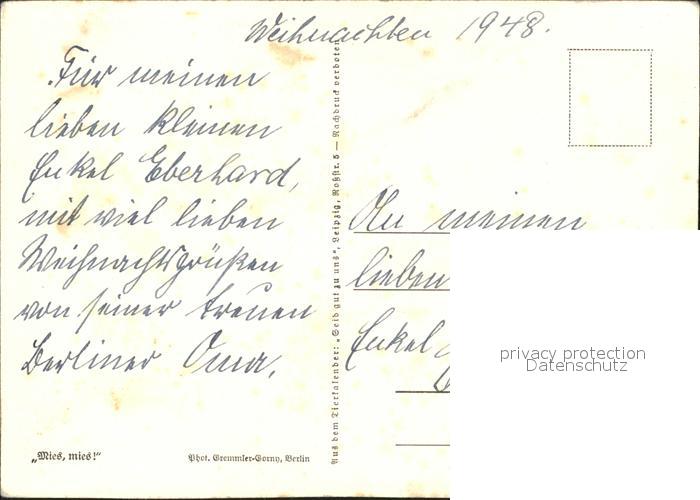 Weihnachten 1948.
Für meinen
lieben kleinen
Enkel Eberhard,
mit viel lieben
Weihnachtsgrüßen
von seiner treuen
Berliner Oma.
„Mies, mies!“
Phot. Gremmler-Gorny, Berlin
Aus dem Tierkalender: „Seid gut zu uns“, Leipzig, Roßstr. 5 — Nachdruck verboten
An meinen
lieben
Enkel
privacy protection
Datenschutz